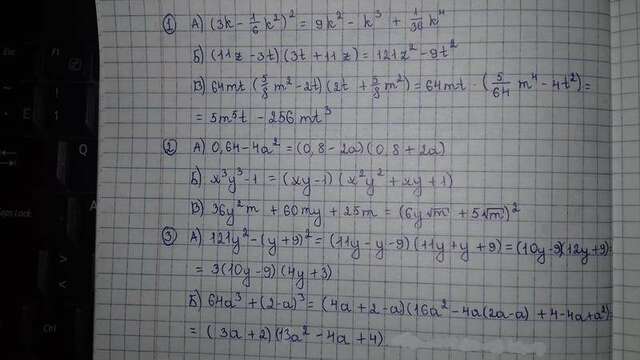 ① А) (3k - 1/6 k²)² = 9k² - k³ + 1/36 k⁴
Б) (11z - 3t)(3t + 11z) = 121z² - 9t²
В) 64mt (5/8 m² - 2t)(2t + 5/8 m²) = 64mt · (5/64 m⁴ - 4t²) =
= 5m⁵t - 256mt³
② А) 0,64 - 4a² = (0,8 - 2a)(0,8 + 2a)
Б) x³y³ - 1 = (xy - 1)(x²y² + xy + 1)
В) 36y²m + 60my + 25m = (6y√m + 5√m)²
③ А) 121y² - (y + 9)² = (11y - y - 9)(11y + y + 9) = (10y - 9)(12y + 9)
= 3(10y - 9)(4y + 3)
Б) 64a³ + (2 - a)³ = (4a + 2 - a)(16a² - 4a(2 - a) + 4 - 4a + a²)
= (3a + 2)(3a² - 4a + 4)